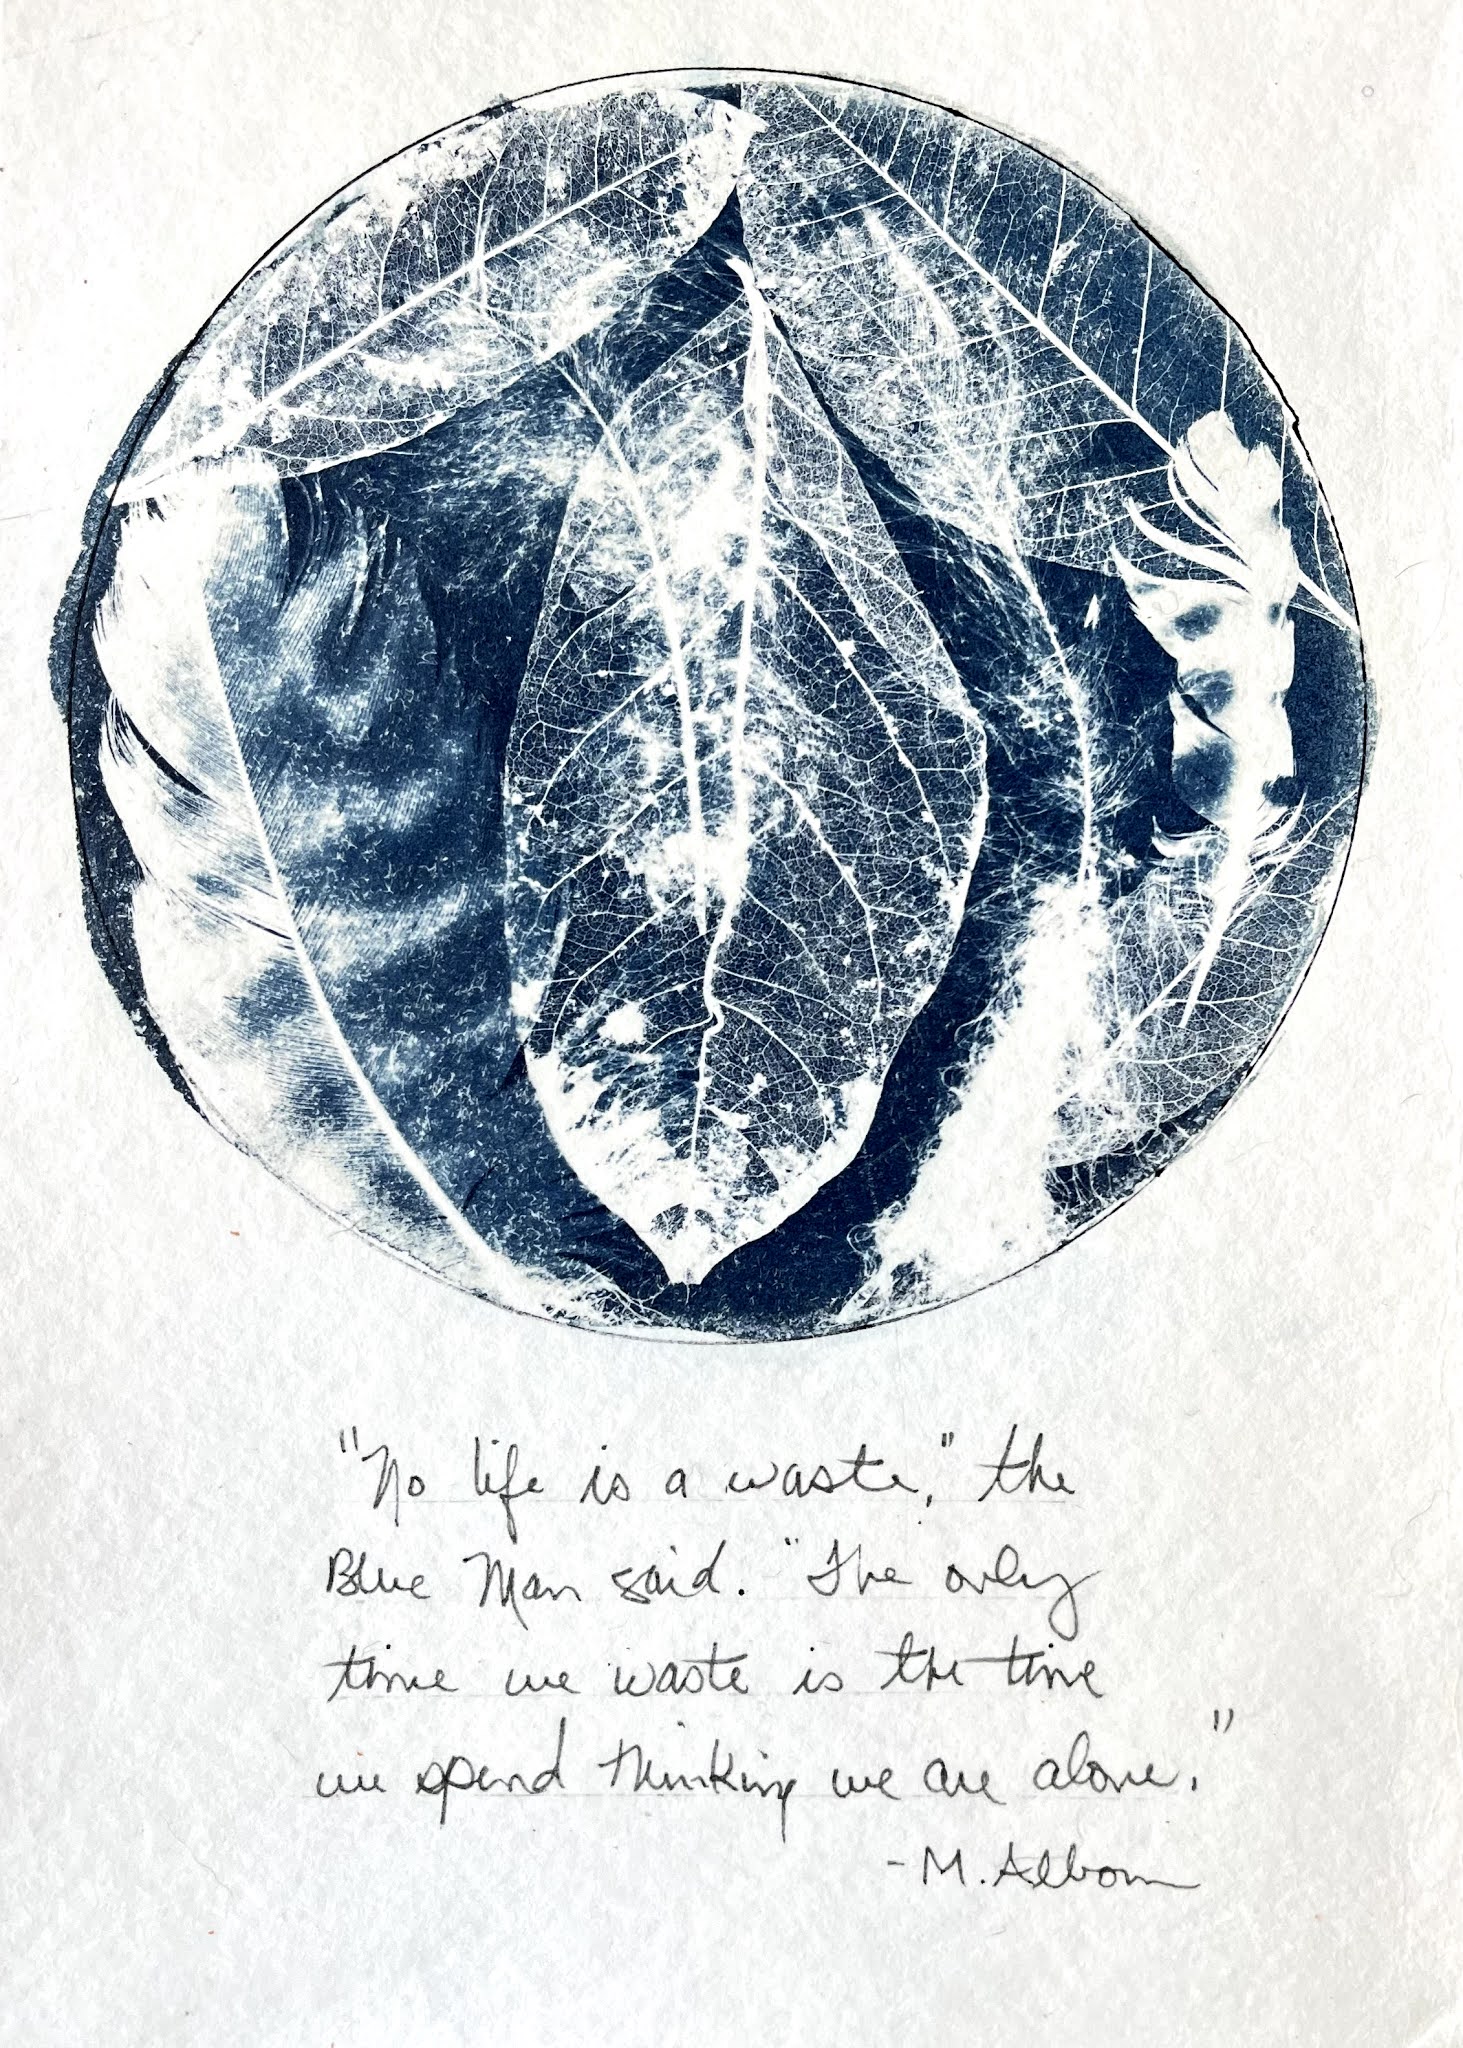 "No life is a waste," the
Blue Man said. "The only
time we waste is the time
we spend thinking we are alone."
-M. Albom